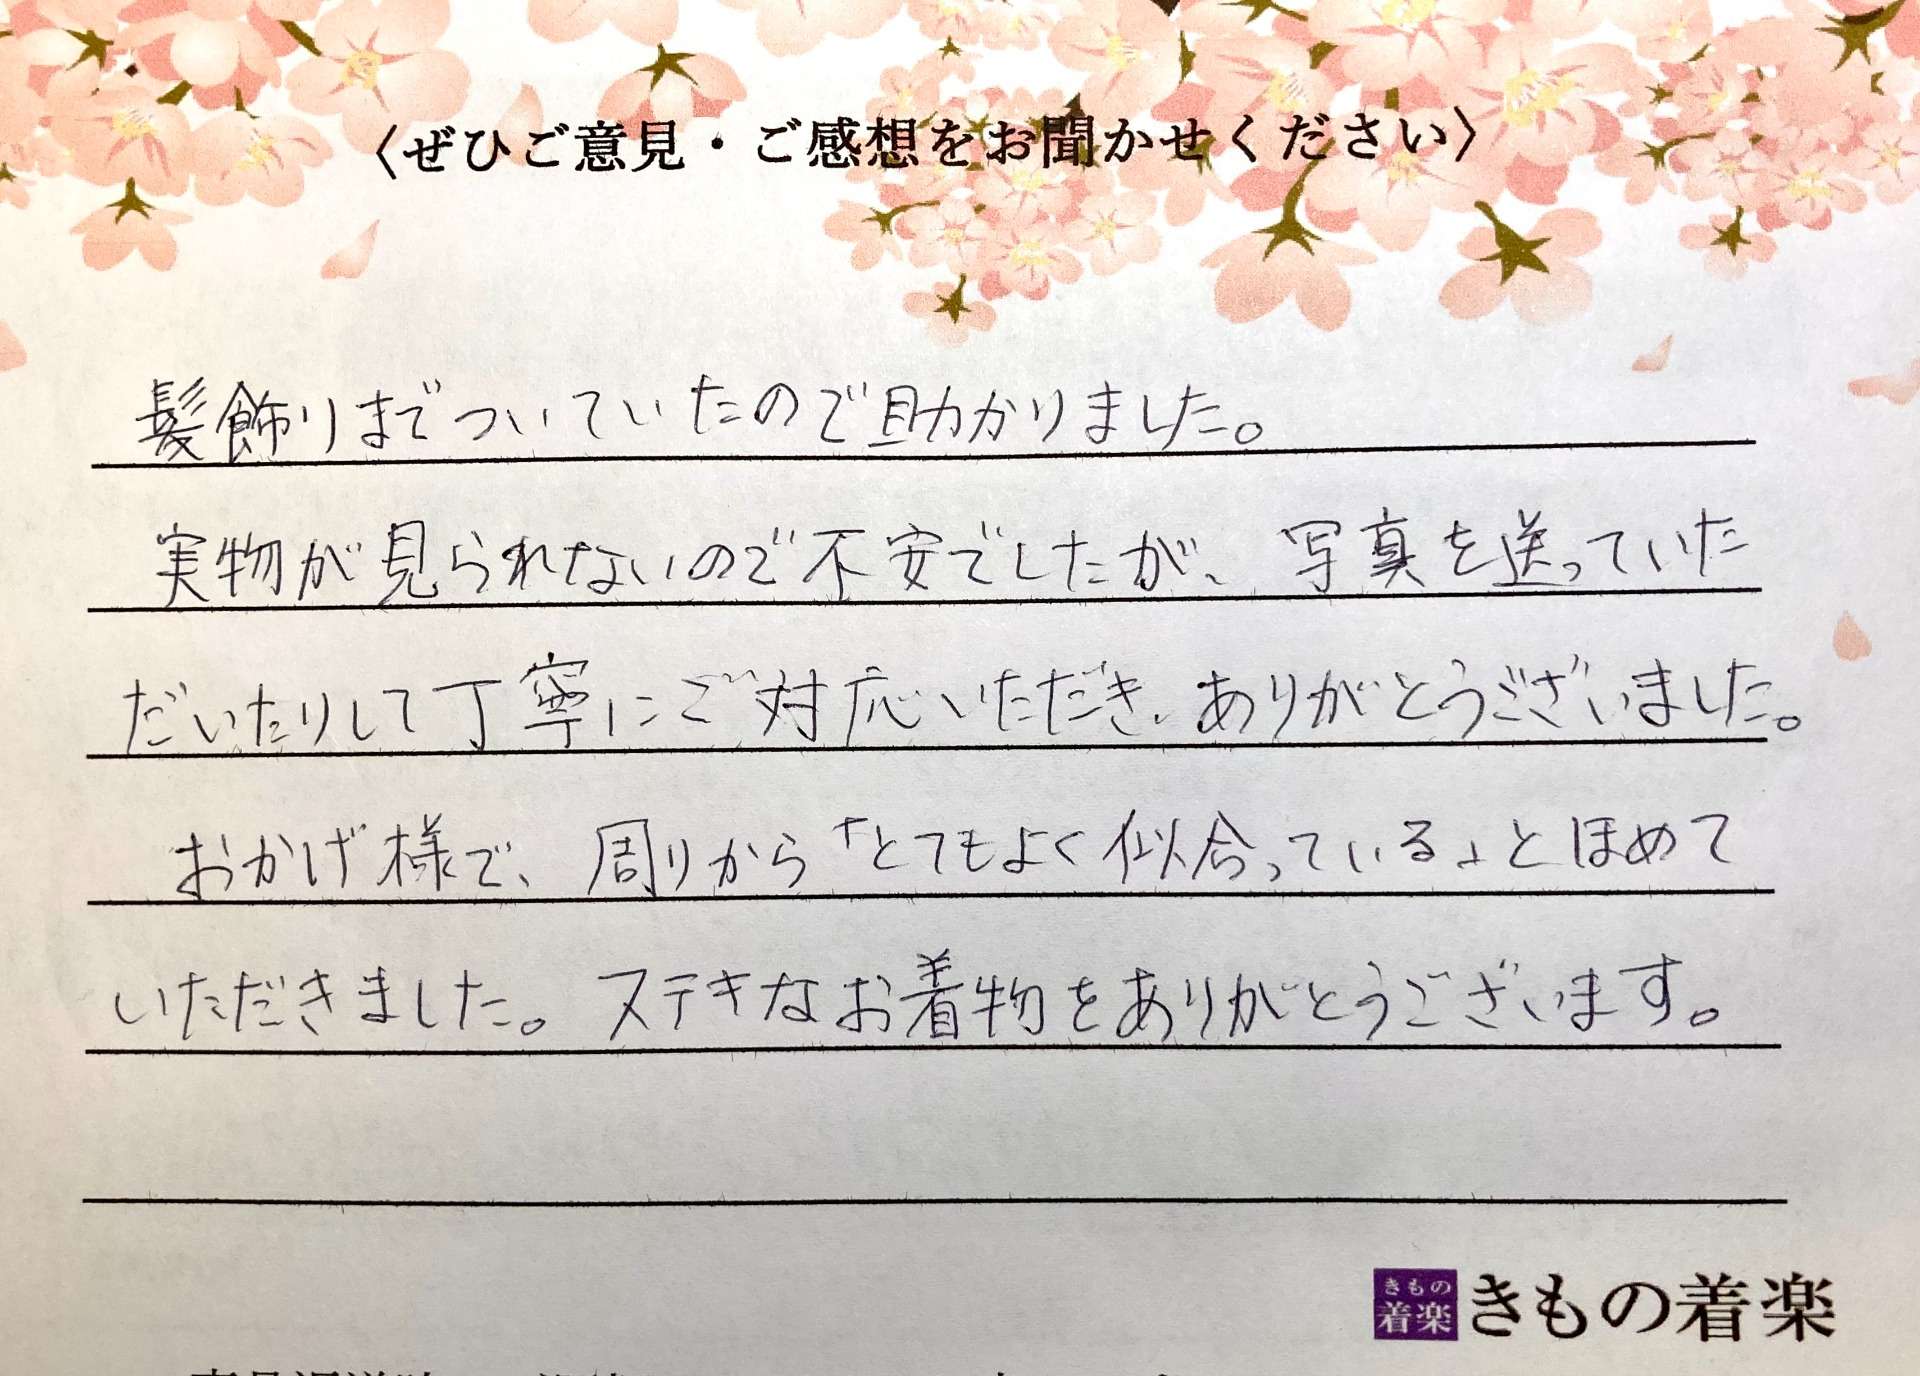 〈ぜひご意見・ご感想をお聞かせください〉
髪飾りまでついていたので助かりました。
実物が見られないので不安でしたが、写真を送っていた
だいたりして丁寧にご対応いただき、ありがとうございました。
おかげ様で、周りから「とてもよく似合っている」とほめて
いただきました。ステキなお着物をありがとうございます。
きもの
着楽
きもの着楽